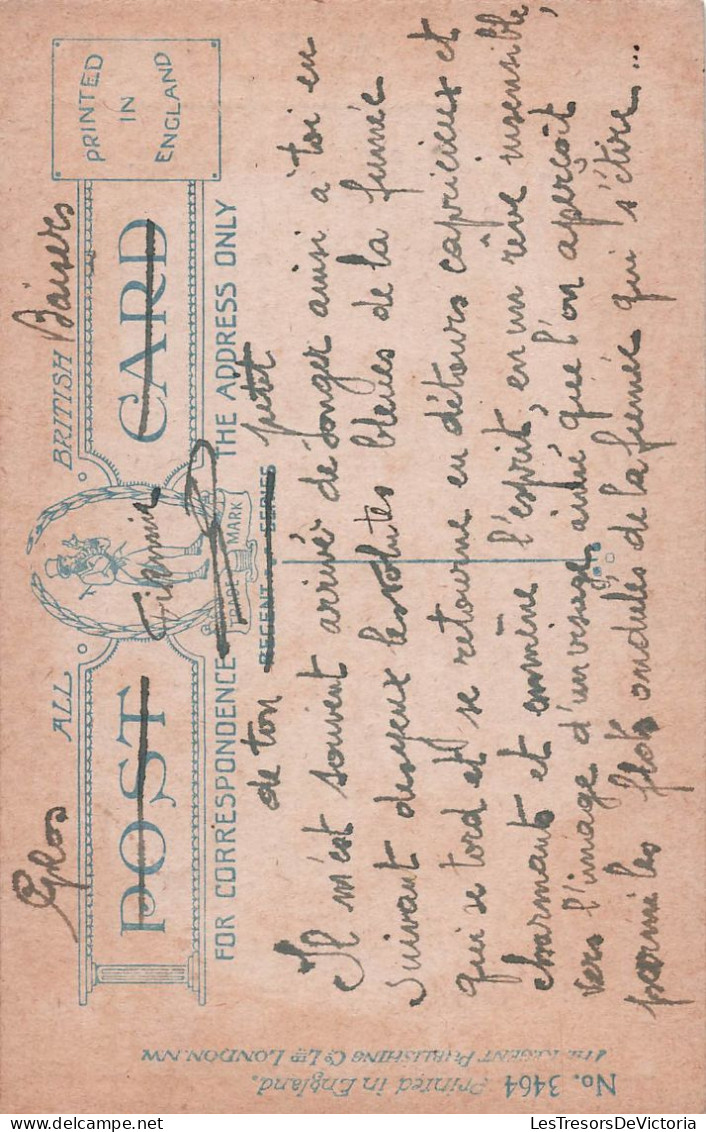 Gros Baisers
ALL BRITISH
POST CARD
PRINTED
IN
ENGLAND
TRADE MARK
FOR CORRESPONDENCE
THE ADDRESS ONLY
REGENT SERIES
de ton petit
Il m'est souvent arrivé de songer ainsi à toi en
suivant des yeux les volutes bleues de la fumée
qui se tord et se retourne en détours capricieux et
charmants et emmène l'esprit, en un rêve insensible,
vers l'image d'un visage aimé que l'on aperçoit
parmi les flots ondulés de la fumée qui s'étire...
No. 3464 Printed in England.
THE REGENT PUBLISHING Co LTD LONDON. NW
LesTresorsDeVictoria